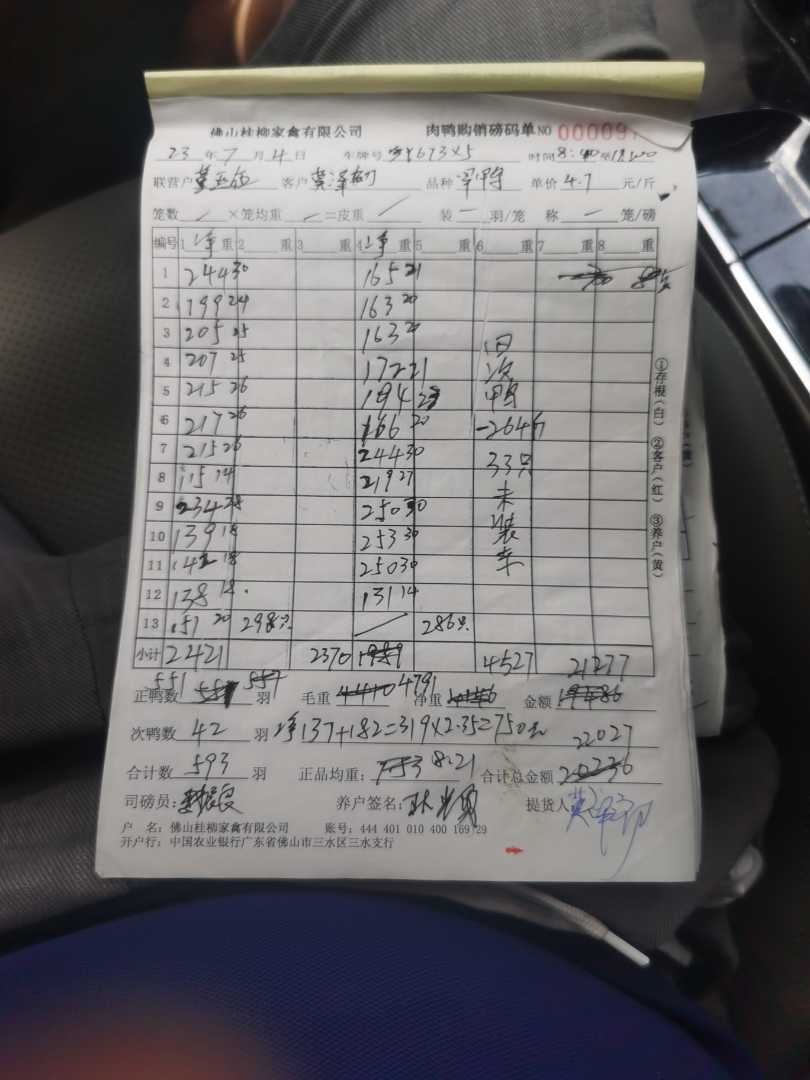 佛山桂柳家禽有限公司 肉鸭购销磅码单 NO 000097
23 年 7 月 4 日 车牌号 时间 8:40
联营户 客户 品种 单价 4.7 元/斤
笼数 × 笼均重 = 皮重 装 一 羽/笼 称 一 笼/磅
编号 1 净 重 2 重 3 重 4 净 重 5 重 6 重 7 重 8 重
1 244 30 165 21
2 199 24 163 20
3 205 25 163 20
4 207 25 172 21
5 215 26 194 23
6 217 26 166 20 -264斤
7 215 26 244 30
8 115 14 219 27 33只
9 234 28 250 30 未
10 139 18 253 30 装
11 142 18 250 30 车
12 138 18 131 14
13 151 20 298只 286只
小计 2421 2370 4527 21277
正鸭数 551 羽 毛重 4791 净重 金额
次鸭数 42 羽 净137+182=319×2.35=750元
22027
合计数 593 羽 正品均重: 8.21 合计总金额
司磅员: 养户签名: 提货人
户 名: 佛山桂柳家禽有限公司 账号: 444 401 010 400 169 29
开户行: 中国农业银行广东省佛山市三水区三水支行
①存根(白) ②客户(红) ③养户(黄)